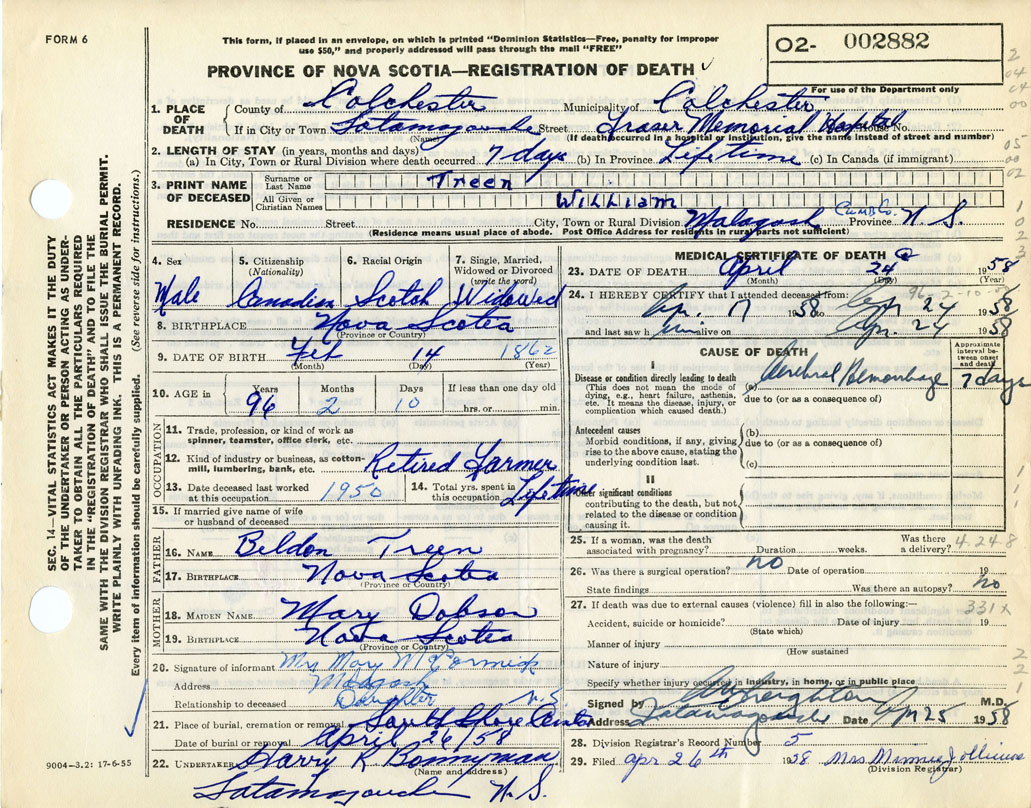 FORM 6
This form, if placed in an envelope, on which is printed "Dominion Statistics—Free, penalty for improper
use $50," and properly addressed will pass through the mail "FREE"
02- 002882
For use of the Department only
PROVINCE OF NOVA SCOTIA—REGISTRATION OF DEATH
SEC. 14—VITAL STATISTICS ACT MAKES IT THE DUTY
OF THE UNDERTAKER OR PERSON ACTING AS UNDER-
TAKER TO OBTAIN ALL THE PARTICULARS REQUIRED
IN THE "REGISTRATION OF DEATH" AND TO FILE THE
SAME WITH THE DIVISION REGISTRAR WHO SHALL ISSUE THE BURIAL PERMIT.
WRITE PLAINLY WITH UNFADING INK. THIS IS A PERMANENT RECORD.
Every item of information should be carefully supplied. (See reverse side for instructions.)
1. PLACE OF DEATH County of Colchester Municipality of Colchester
If in City or Town Tatamagouche Street Fraser Memorial Hospital House No.
(Name) (If death occurred in a hospital or institution, give the name instead of street and number)
2. LENGTH OF STAY (in years, months and days)
(a) In City, Town or Rural Division where death occurred 7 days (b) In Province Lifetime (c) In Canada (if immigrant)
3. PRINT NAME OF DECEASED Surname or Last Name Treen
All Given or Christian Names William
RESIDENCE No. Street City, Town or Rural Division Malagash Cumb Co. Province N. S.
(Residence means usual place of abode. Post Office Address for residents in rural parts not sufficient)
4. Sex 5. Citizenship (Nationality) 6. Racial Origin 7. Single, Married, Widowed or Divorced (write the word)
Male Canadian Scotch Widowed
8. BIRTHPLACE Nova Scotia
(Province or Country)
9. DATE OF BIRTH Feb 14 1862
(Month) (Day) (Year)
10. AGE in Years Months Days If less than one day old
96 2 10 hrs. or min.
OCCUPATION
11. Trade, profession, or kind of work as
spinner, teamster, office clerk, etc.
12. Kind of industry or business, as cotton-
mill, lumbering, bank, etc. Retired Farmer
13. Date deceased last worked at this occupation 1950 14. Total yrs. spent in this occupation Lifetime
15. If married give name of wife
or husband of deceased
FATHER
16. NAME Beldon Treen
17. BIRTHPLACE Nova Scotia
(Province or Country)
MOTHER
18. MAIDEN NAME Mary Dobson
19. BIRTHPLACE Nova Scotia
(Province or Country)
20. Signature of informant Mrs Mary McCormick
Address Malagash N S
Relationship to deceased Daughter
21. Place of burial, cremation or removal South Shore Center
Date of burial or removal April 26/58
22. UNDERTAKER Harry K Bonnyman
(Name and address)
Tatamagouche N. S.
9004—3.2: 17-6-55
MEDICAL CERTIFICATE OF DEATH
23. DATE OF DEATH April 24 1958
(Month) (Day) (Year)
24. I HEREBY CERTIFY that I attended deceased from:
Ap. 17 1958 to Apr 24 1958
and last saw h im alive on Apr. 24 1958
CAUSE OF DEATH
Approximate interval between onset and death
I
Disease or condition directly leading to death (a) Cerebral Hemorrhage 7 days
(This does not mean the mode of dying, e.g., heart failure, asthenia, etc. It means the disease, injury, or complication which caused death.)
due to (or as a consequence of)
Antecedent causes (b)
Morbid conditions, if any, giving rise to the above cause, stating the underlying condition last.
due to (or as a consequence of)
(c)
II
Other significant conditions
contributing to the death, but not related to the disease or condition causing it.
25. If a woman, was the death associated with pregnancy? Duration weeks. Was there a delivery? 4.24.8
26. Was there a surgical operation? no Date of operation 19
State findings Was there an autopsy? no
27. If death was due to external causes (violence) fill in also the following:— 331x
Accident, suicide or homicide? Date of injury 19
(State which)
Manner of injury
(How sustained
Nature of injury
Specify whether injury occurred in industry, in home, or in public place
Signed by Creighton M.D.
Address Tatamagouche Date Apr 25 1958
28. Division Registrar's Record Number 5
29. Filed Apr 26th 1958 Mrs. Minnie
(Division Registrar)